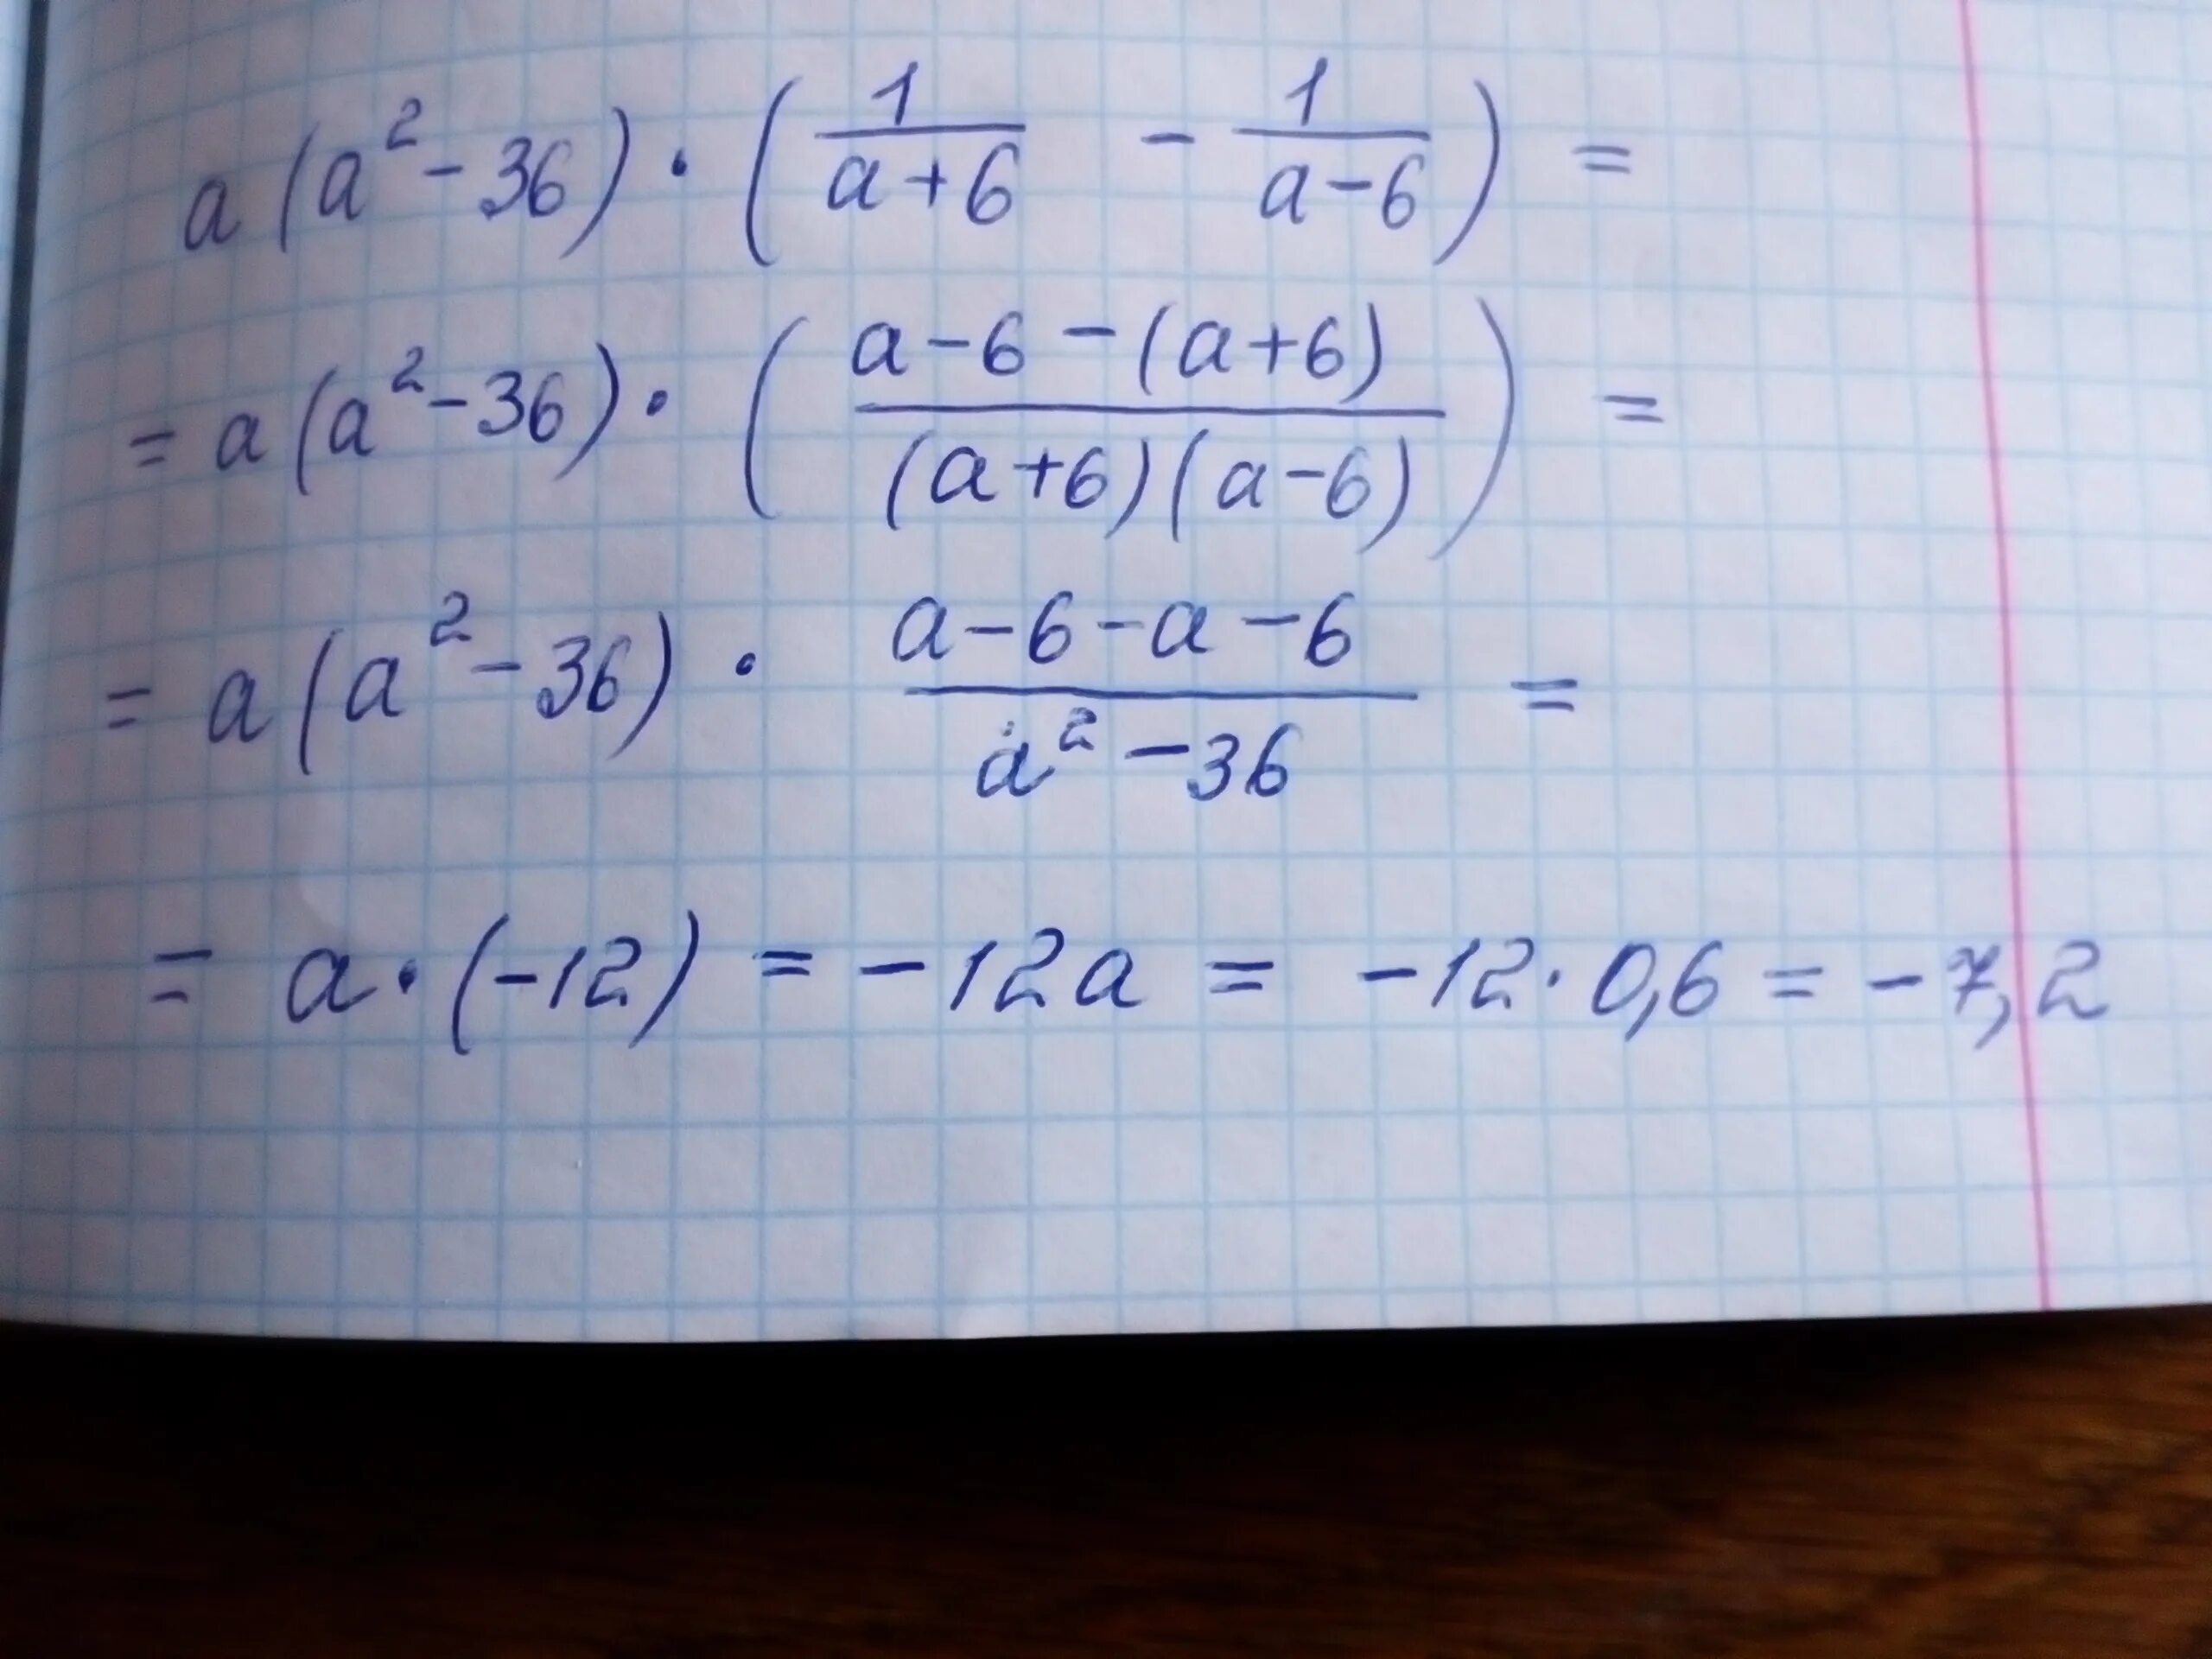 a(a²-36)·(1/(a+6) - 1/(a-6)) =
= a(a²-36)·((a-6-(a+6))/((a+6)(a-6))) =
= a(a²-36)·(a-6-a-6)/(a²-36) =
= a·(-12) = -12a = -12·0,6 = -7,2